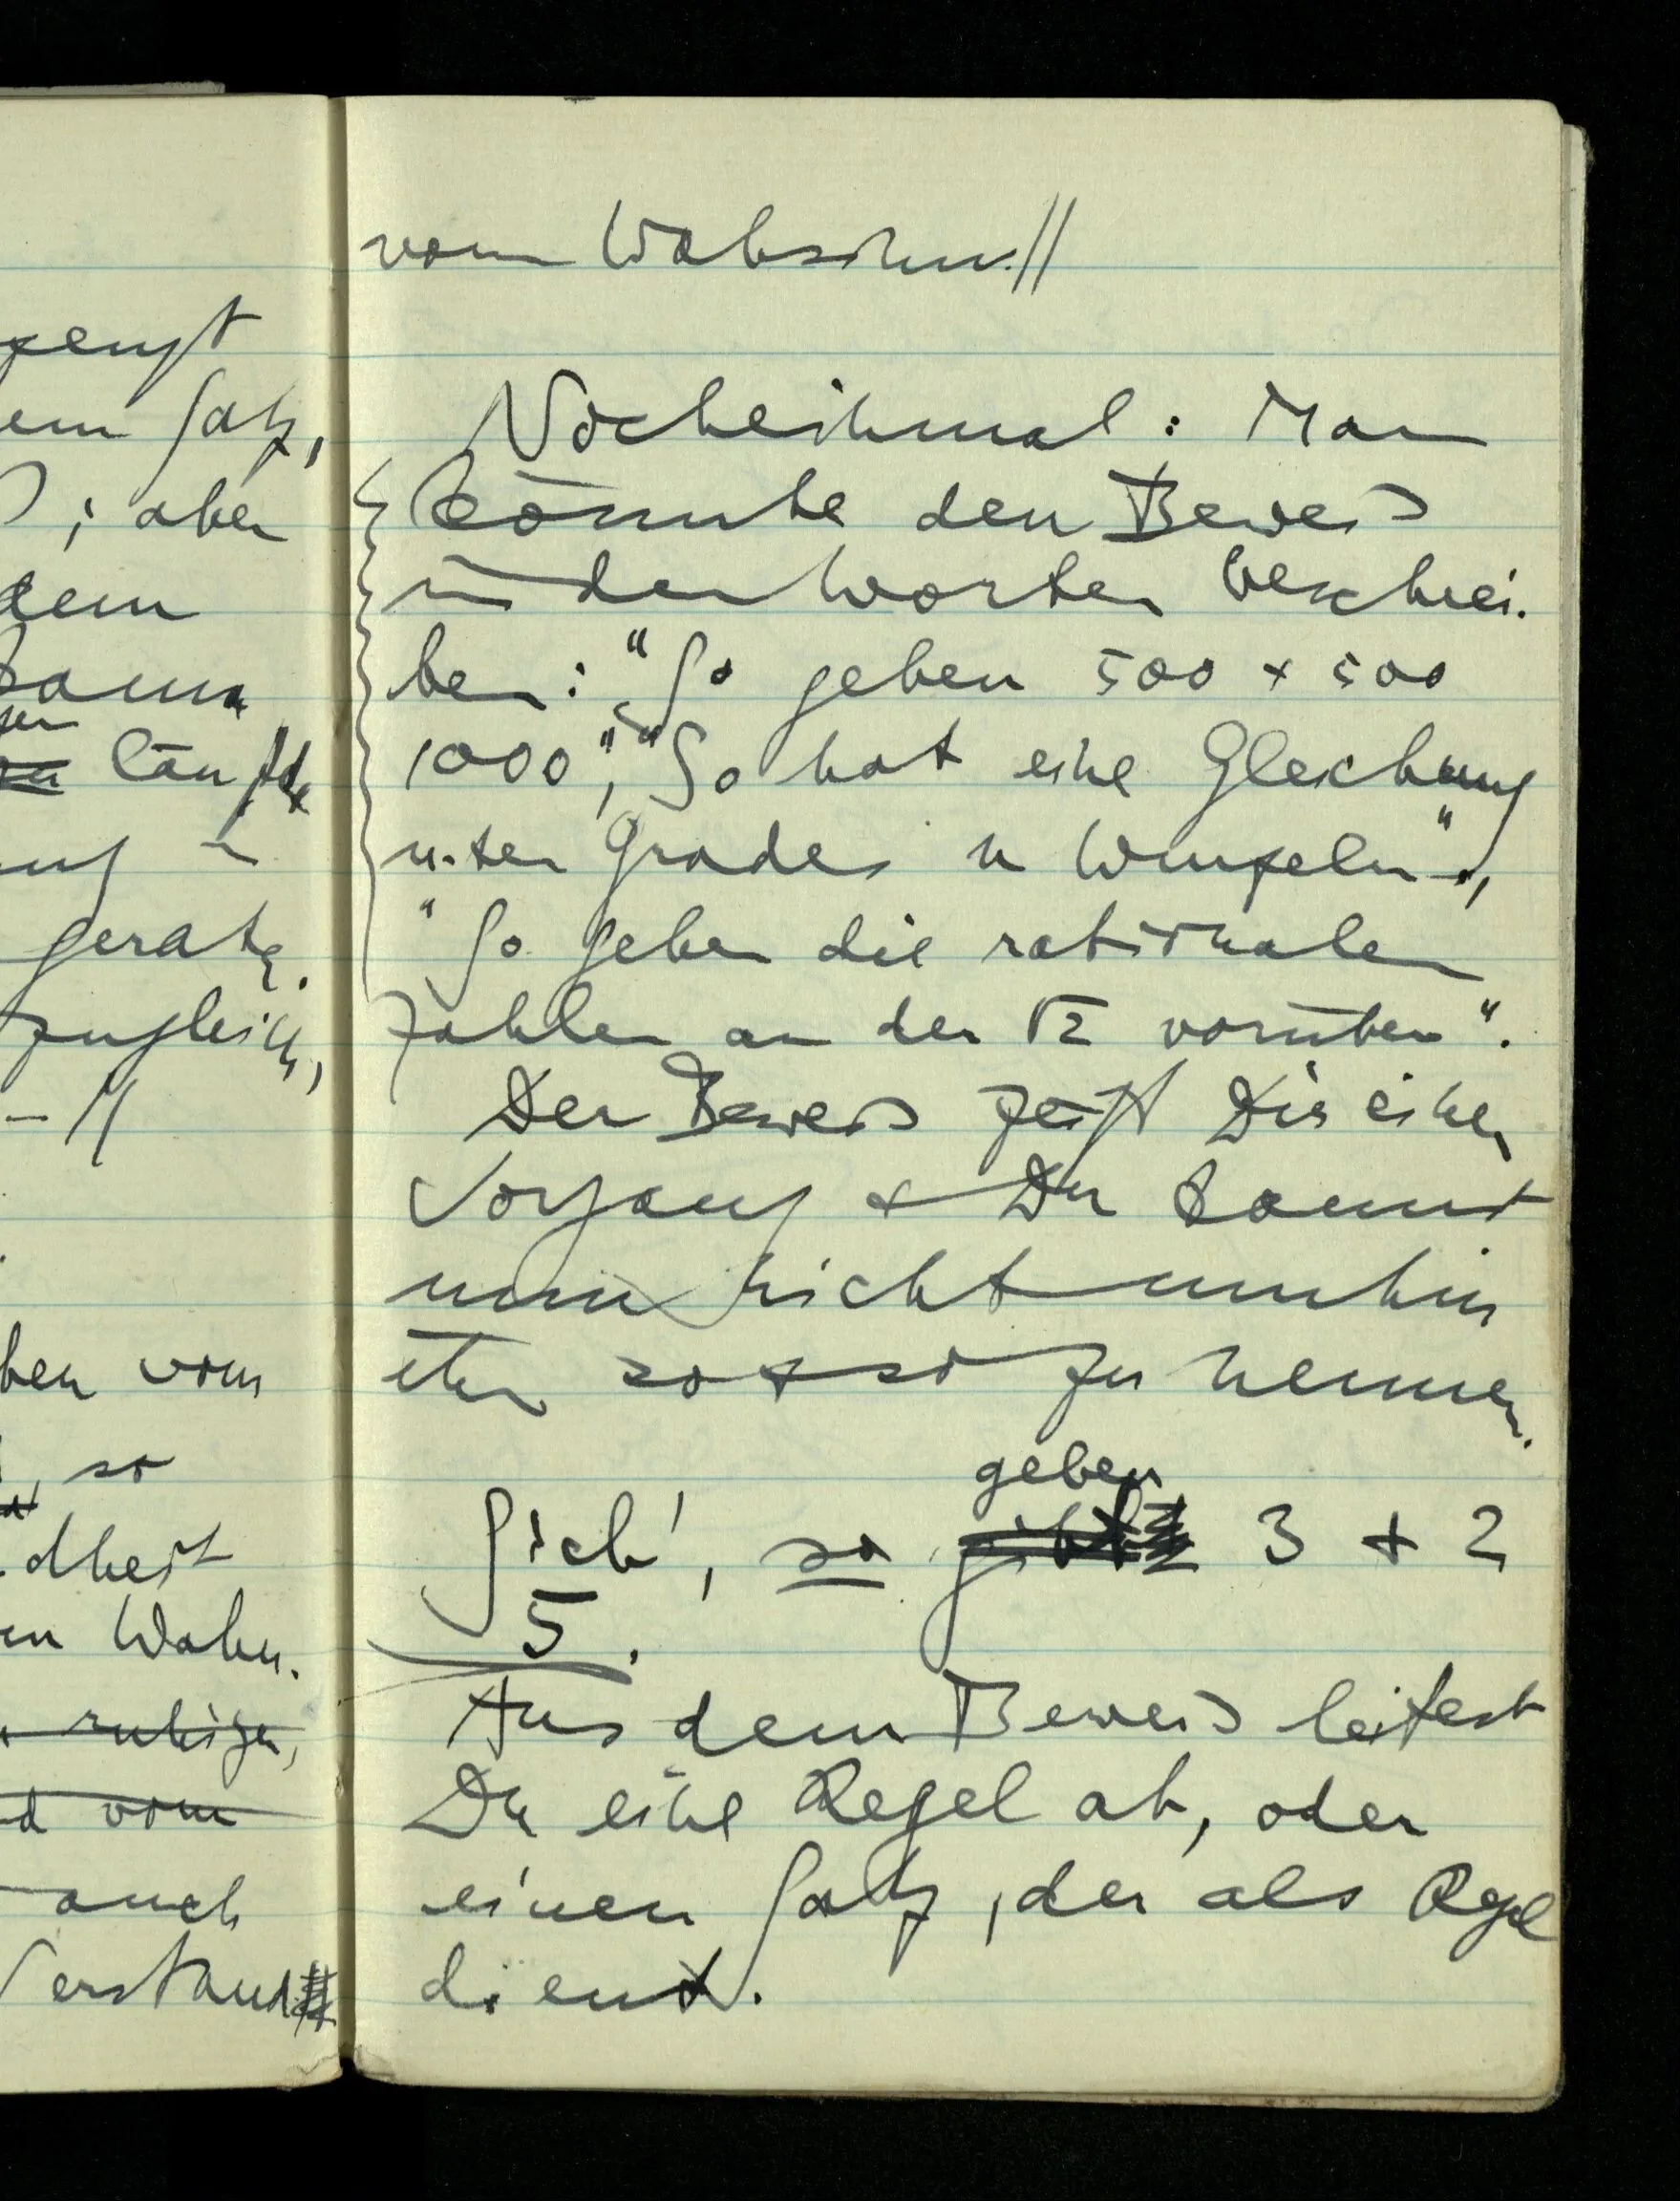 zeugt
em Satz,
; aber
dem
kann
läuft
ung
gerate.
zugleich,
ben vom
, so
dheit
en Wahn.
ruhigen,
d vom
auch
Verstand
vom Wahnsinn.//
Nocheinmal: Man
könnte den Beweis
in den Worten beschrei-
ben: "So geben 500 + 500
1000", "So hat eine Gleichung
n-ten Grades n Wurzeln",
"So gehen die rationalen
Zahlen an der √2 vorüber".
Der Beweis zeigt Dir einen
Vorgang & Du kannst
nun nicht umhin
ihn so & so zu nennen.
geben
Sieh', so gibt 3 + 2
5.
Aus dem Beweis leitest
Du eine Regel ab, oder
einen Satz, der als Regel
dient.